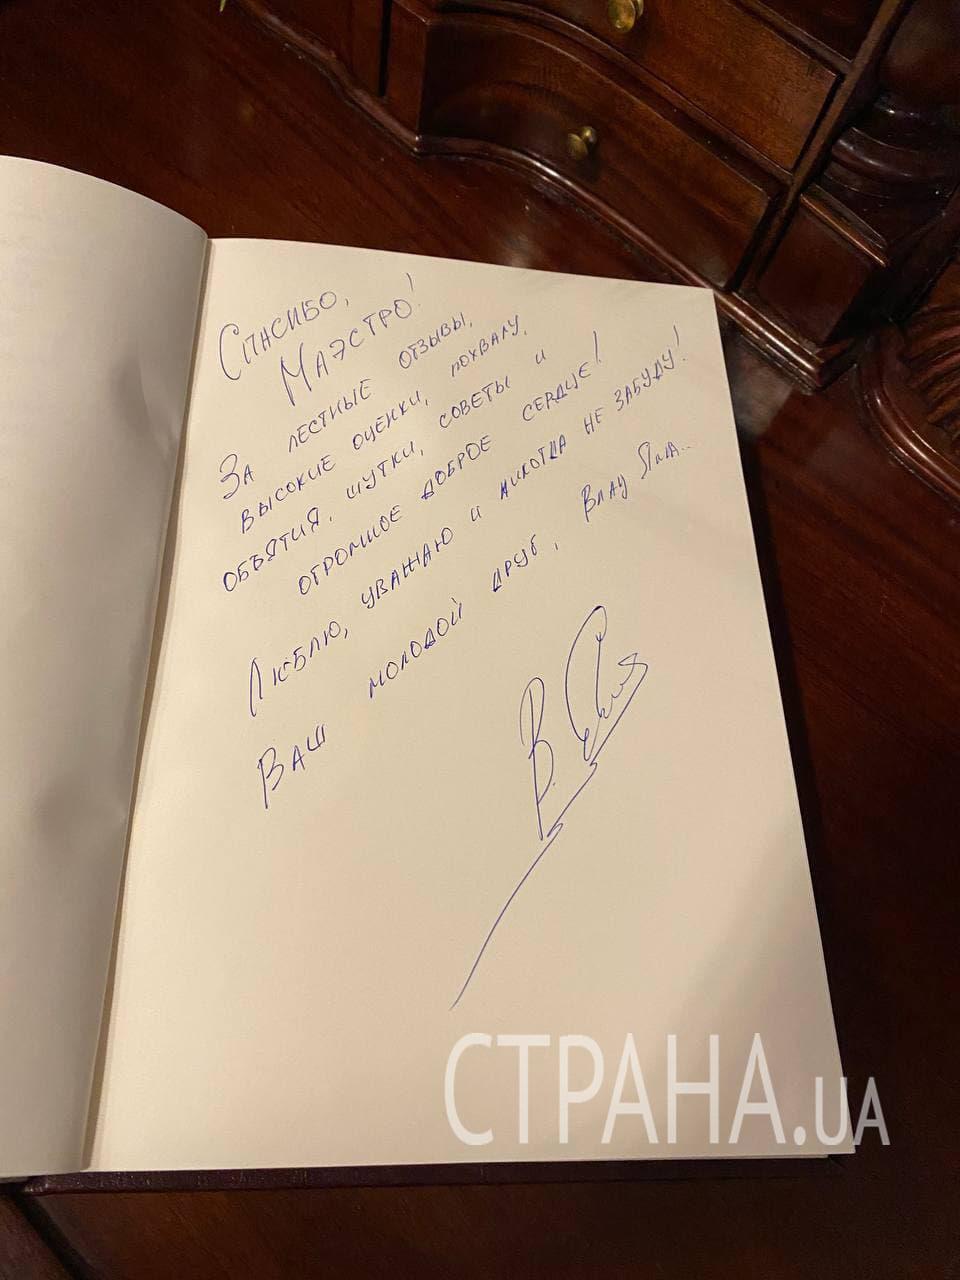 Спасибо,
Маэстро!
За лестные отзывы,
высокие оценки, похвалу,
объятия, шутки, советы и
огромное доброе сердце!
Люблю, уважаю и никогда не забуду!
Ваш молодой друг, Влад Яма...
СТРАНА.UA